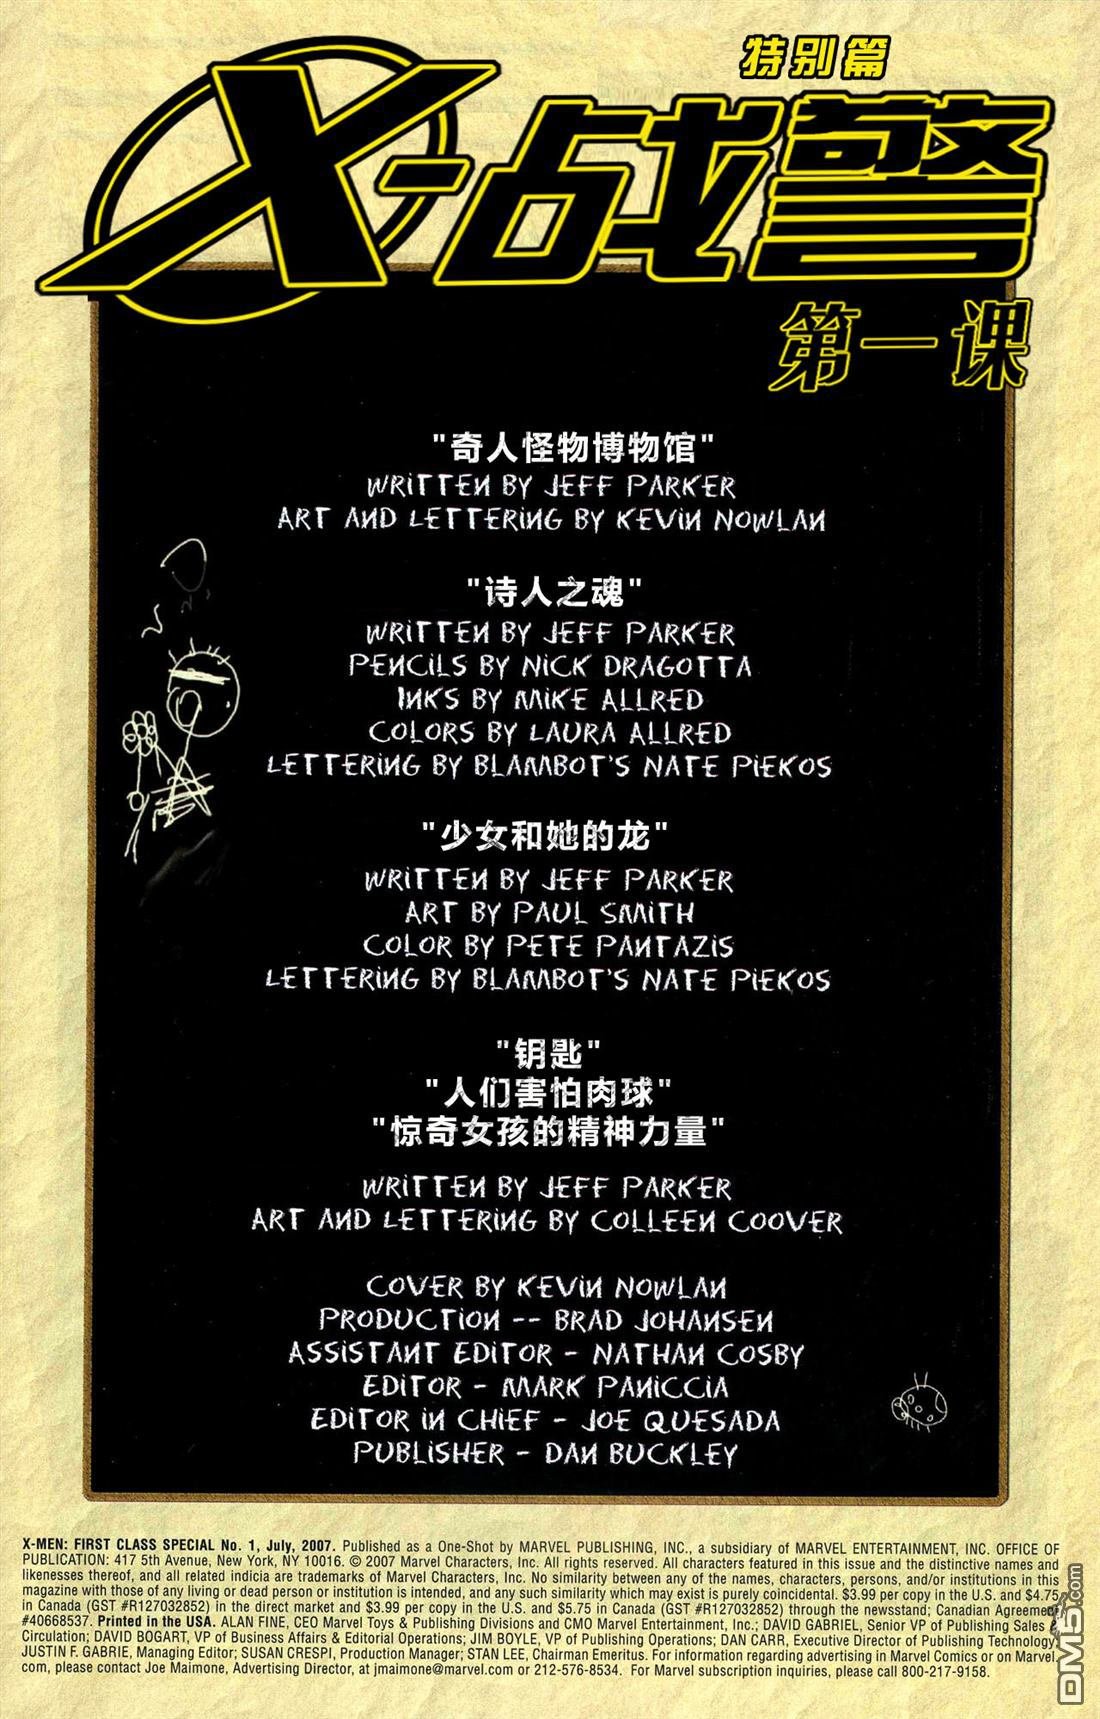 特别篇
X-战警
第一课
"奇人怪物博物馆"
WRITTEN BY JEFF PARKER
ART AND LETTERING BY KEVIN NOWLAN
"诗人之魂"
WRITTEN BY JEFF PARKER
PENCILS BY NICK DRAGOTTA
INKS BY MIKE ALLRED
COLORS BY LAURA ALLRED
LETTERING BY BLAMBOT'S NATE PIEKOS
"少女和她的龙"
WRITTEN BY JEFF PARKER
ART BY PAUL SMITH
COLOR BY PETE PANTAZIS
LETTERING BY BLAMBOT'S NATE PIEKOS
"钥匙"
"人们害怕肉球"
"惊奇女孩的精神力量"
WRITTEN BY JEFF PARKER
ART AND LETTERING BY COLLEEN COOVER
COVER BY KEVIN NOWLAN
PRODUCTION -- BRAD JOHANSEN
ASSISTANT EDITOR - NATHAN COSBY
EDITOR - MARK PANICCIA
EDITOR IN CHIEF - JOE QUESADA
PUBLISHER - DAN BUCKLEY
X-MEN: FIRST CLASS SPECIAL No. 1, July, 2007. Published as a One-Shot by MARVEL PUBLISHING, INC., a subsidiary of MARVEL ENTERTAINMENT, INC. OFFICE OF
PUBLICATION: 417 5th Avenue, New York, NY 10016. © 2007 Marvel Characters, Inc. All rights reserved. All characters featured in this issue and the distinctive names and
likenesses thereof, and all related indicia are trademarks of Marvel Characters, Inc. No similarity between any of the names, characters, persons, and/or institutions in this
magazine with those of any living or dead person or institution is intended, and any such similarity which may exist is purely coincidental. $3.99 per copy in the U.S. and $4.75
in Canada (GST #R127032852) in the direct market and $3.99 per copy in the U.S. and $5.75 in Canada (GST #R127032852) through the newsstand; Canadian Agreement
#40668537. Printed in the USA. ALAN FINE, CEO Marvel Toys & Publishing Divisions and CMO Marvel Entertainment, Inc.; DAVID GABRIEL, Senior VP of Publishing Sales &
Circulation; DAVID BOGART, VP of Business Affairs & Editorial Operations; JIM BOYLE, VP of Publishing Operations; DAN CARR, Executive Director of Publishing Technology;
JUSTIN F. GABRIE, Managing Editor; SUSAN CRESPI, Production Manager; STAN LEE, Chairman Emeritus. For information regarding advertising in Marvel Comics or on Marvel.
com, please contact Joe Maimone, Advertising Director, at jmaimone@marvel.com or 212-576-8534. For Marvel subscription inquiries, please call 800-217-9158.
DM5.com